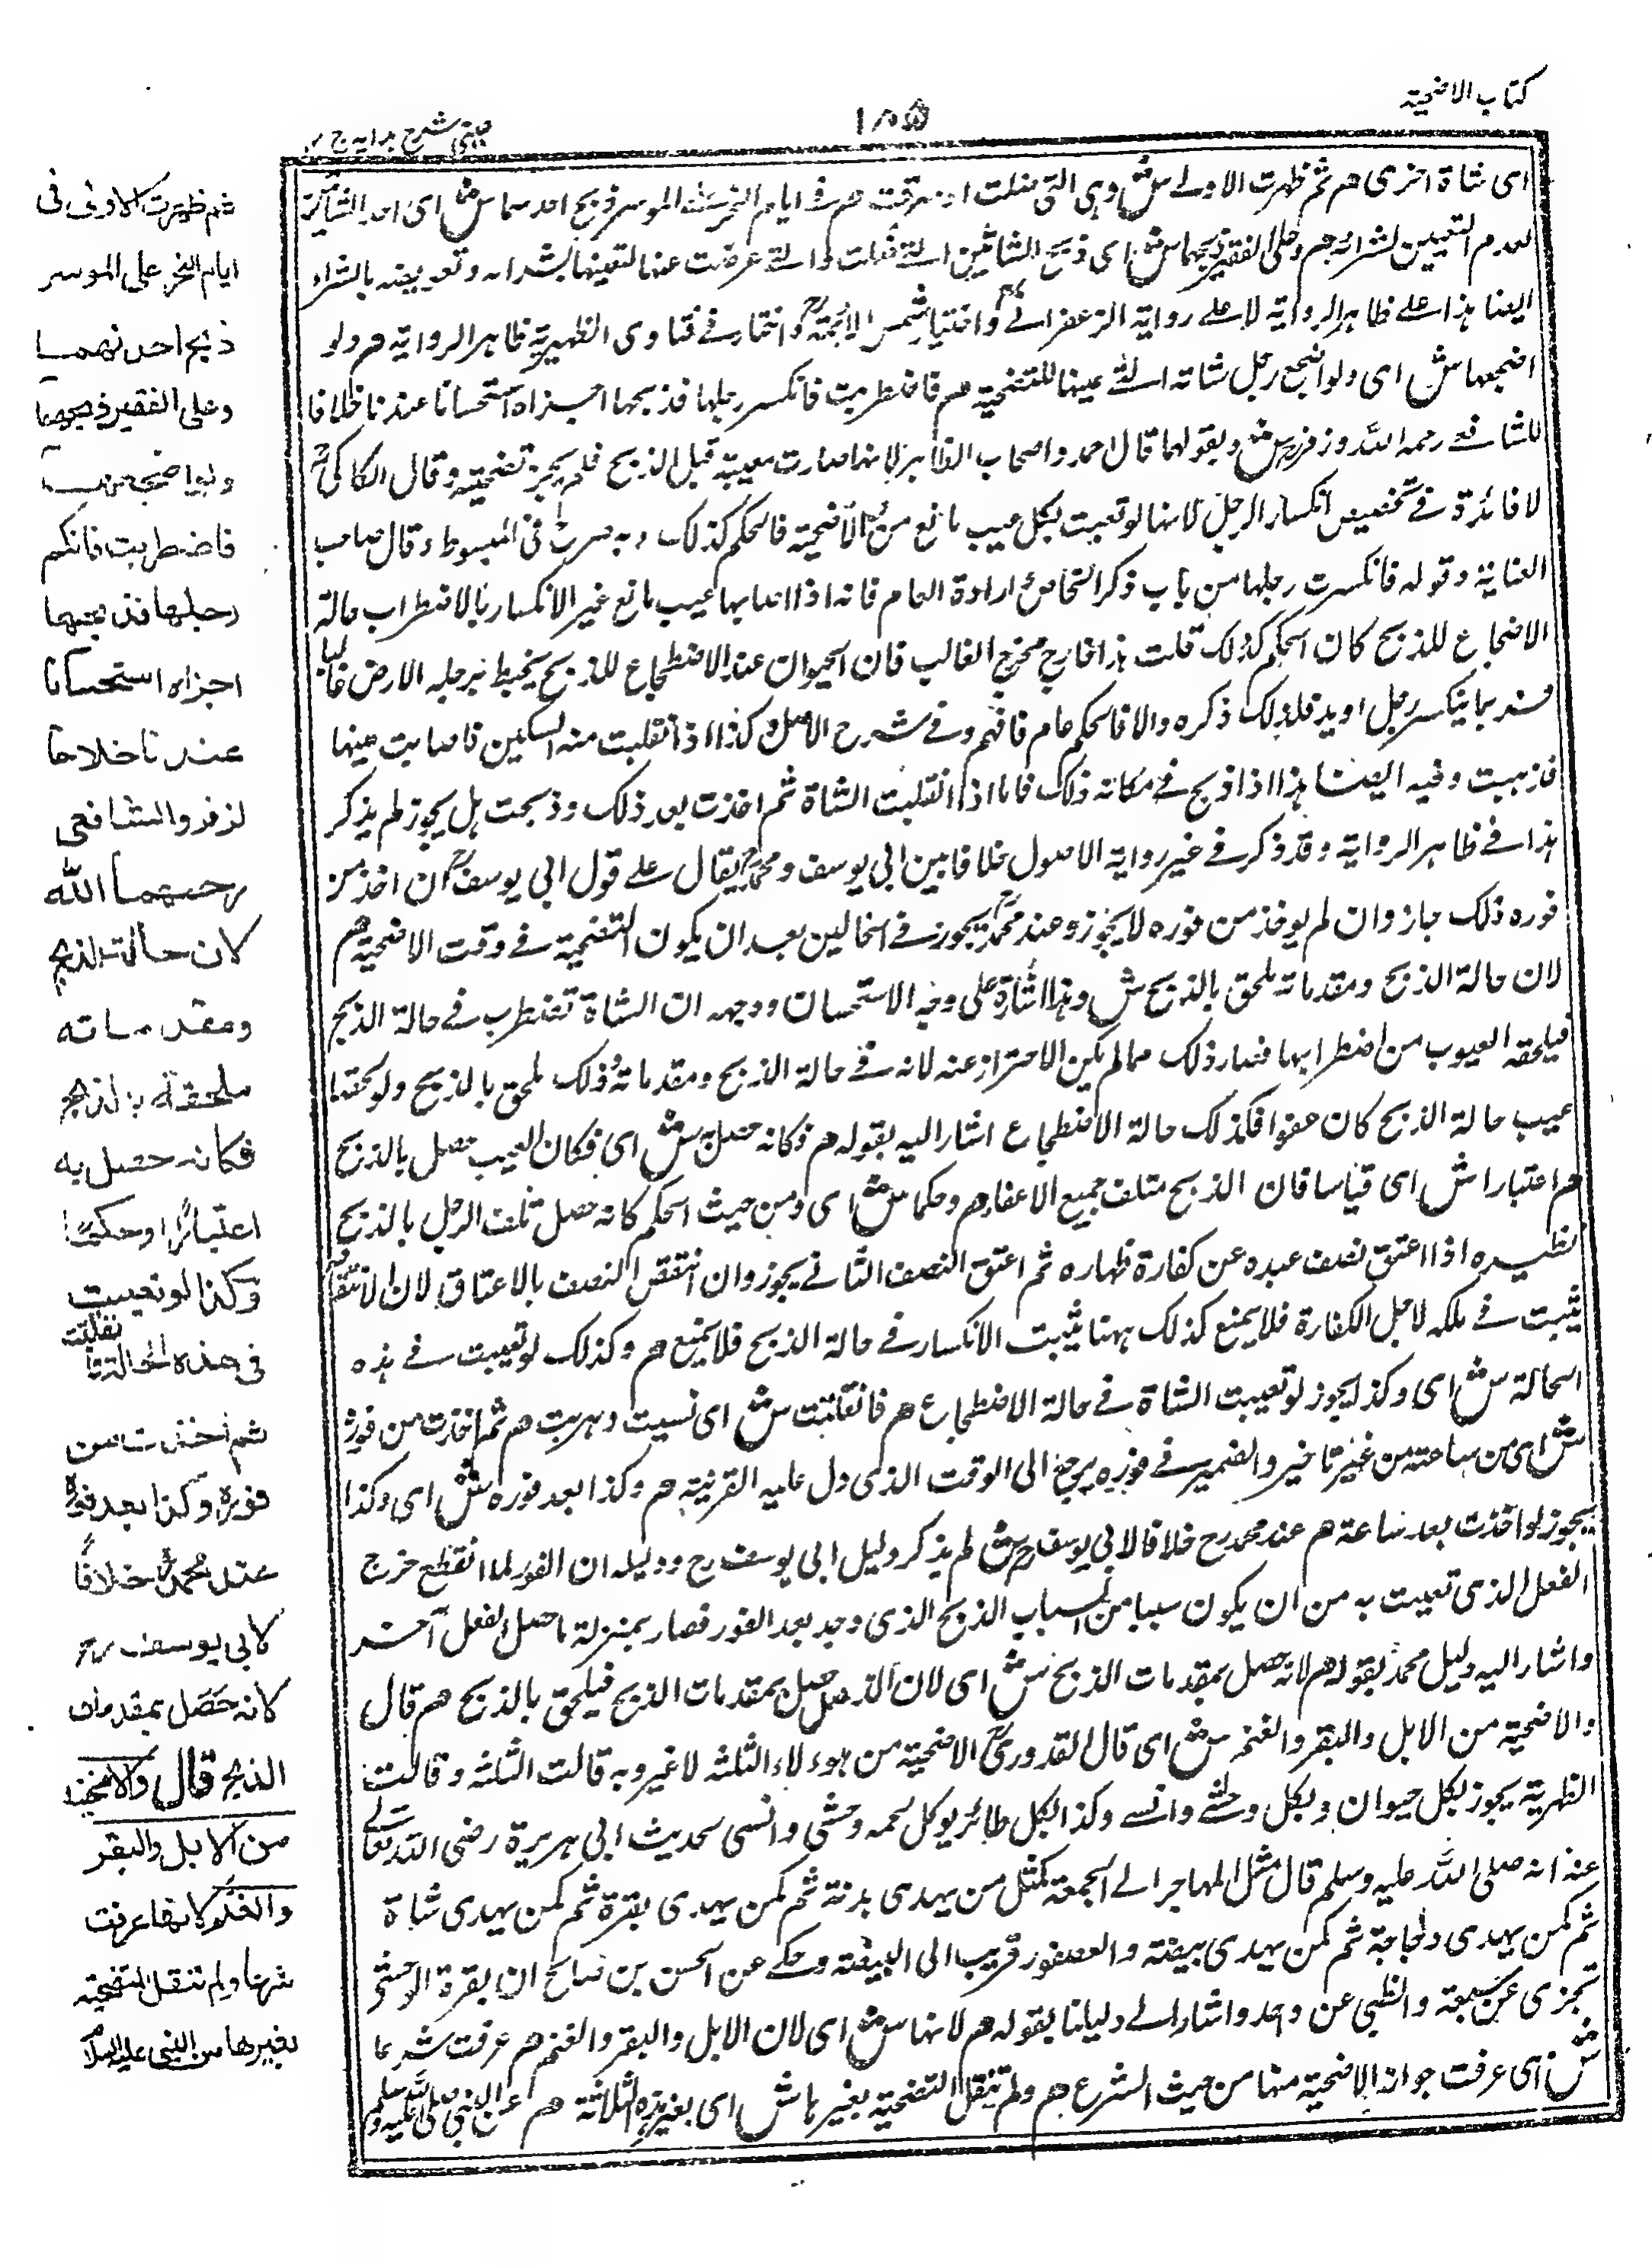 كتاب الاضحية
١٨٥
عینی شرح ہدایہ ج ۴
ای شاة اخری هم ثم ظهرت الاولے ش وہی التی ضلت او سرقت هم فے ایام النحر علی الموسر ذبح احدیہما ش ای احد الشاتین
لعدم التعیین لشرائہ هم وعلی الفقیر ذبحہما ش ای ذبح الشاتین التے ضلت والتے عرضت عنہا لتعینہا بشرائہ وتعویضہ بالشراء
ایضا ہذا علے ظاہر الروایة لا علے روایة الزعفرانے واختیار شمس الائمة واختار فے فتاوی الظہیریة ظاہر الروایة هم ولو
اضجعہا ش ای ولو اضجع رجل شاتہ التے عینہا للتضحیة هم فاضطربت فانکسر رجلہا فذبحہا اجزاہ استحسانا عندنا خلافا
للشافعے رحمہ اللہ وزفر ش وبقولہما قال احمد واصحاب الظاہر لانہا صارت معیبة قبل الذبح فلم یجز تضحیتہ وقال الکاکی
لا فائدة فے تخصیص انکسار الرجل لانہا لو تعیبت بکل عیب مانع من الاضحیة فالحکم کذلک وبہ صرح فی المبسوط وقال صاحب
العنایة وقولہ فانکسرت رجلہا من باب ذکر الخاص وارادة العام فانہ اذا اصابہا عیب مانع غیر الانکسار بالاضطراب حالة
الاضجاع للذبح کان الحکم کذلک قلت ہذا خارج مخرج الغالب فان الحیوان عند الاضطجاع للذبح یخبط برجلہ الارض غالبا
فربما ینکسر رجل او ید فلذلک ذکرہ والا فالحکم عام فافہم وفے شرح الاصل وکذا اذا انقلبت منہ السکین فاصابت عینہا
فذہبت وفیہ ایضا ہذا اذا ذبح فے مکانہ ذلک فاما اذا انقلبت الشاة ثم اخذت بعد ذلک وذبحت ہل یجوز لم یذکر
ہذا فے ظاہر الروایة وقد ذکر فے غیر روایة الاصول خلافا بین ابی یوسف ومحمد یقال علے قول ابی یوسف ان اخذ من
فورہ ذلک جاز وان لم یوخذ من فورہ لا یجوز وعند محمد یجوز فے الحالین بعد ان یکون التضحیة فے وقت الاضحیة هم
لان حالة الذبح ومقدماتہ ملحق بالذبح ش وہذا اشارة علی وجہ الاستحسان ووجہہ ان الشاة تضطرب فے حالة الذبح
فیلحقہ العیوب من اضطرابہا فصار ذلک مما لم یکن الاحتراز عنہ لانہ فے حالة الذبح ومقدماتہ وذلک ملحق بالذبح ولو لحقہا
عیب حالة الذبح کان عفوا فکذلک حالة الاضطجاع اشار الیہ بقولہ هم فکانہ حصل بہ ش ای فکان العیب حصل بالذبح
هم اعتبارا ش ای قیاسا فان الذبح متلف جمیع الاعضاء هم وحکما ش ای ومن حیث الحکم کانہ حصل تلف الرجل بالذبح
نظیرہ اذا اعتق نصف عبدہ عن کفارة ظہارہ ثم اعتق النصف الثانے یجوز وان انتقض النصف بالاعتاق لان الانتقاض
یثبت فے ملکہ لاجل الکفارة فلا یمنع کذلک ہہنا یثبت الانکسار فے حالة الذبح فلا یمنع هم وکذلک لو تعیبت فے ہذہ
الحالة ش ای وکذا یجوز لو تعیبت الشاة فے حالة الاضطجاع هم فانفلتت ش ای نسیت وہربت هم ثم اخذت من فورہ
ش ای من ساعتہ من غیر تاخیر والضمیر فے فورہ یرجع الی الوقت الذی دل علیہ القرینة هم وکذا بعد فورہ ش ای وکذا
یجوز لو اخذت بعد ساعة هم عند محمد رح خلافا لابی یوسف رح ش لم یذکر دلیل ابی یوسف رح ودلیلہ ان الفور لما انقطع خرج
الفعل الذی تعیبت بہ من ان یکون سببا من اسباب الذبح الذی وجد بعد الفور فصار بمنزلة ما حصل بفعل آخر
واشار الیہ دلیل محمد بقولہ هم لانہ حصل بمقدمات الذبح ش ای لان الذی حصل حصل بمقدمات الذبح فیلحق بالذبح هم قال
والاضحیة من الابل والبقر والغنم ش ای قال القدوری الاضحیة من ہوءلاء الثلثہ لا غیر وبہ قالت الثلثہ وقالت
الظہریة یجوز بکل حیوان وبکل وحشے وانسے وکذا بکل طائر یوکل لحمہ وحشی وانسی لحدیث ابی ہریرة رضی اللہ تعالے
عنہ انہ صلی اللہ علیہ وسلم قال مثل المہاجر الے الجمعة کمثل من یہدی بدنة ثم کمن یہدی بقرة ثم کمن یہدی شاة
ثم کمن یہدی دجاجة ثم کمن یہدی بیضة والعصفور قریب الی البیضة وحکے عن الحسن بن صالح ان بقرة الوحش
تجزی عن سبعة والظبی عن واحد واشار الے دلیلنا بقولہ هم لانہا ش ای لان الابل والبقر والغنم هم عرفت شرعا
ش ای عرفت جواز الاضحیة منہا من حیث الشرع هم ولم تنقل التضحیة بغیرہا ش ای بغیر ہذہ الثلاثة هم عن النبی صلی اللہ علیہ وسلم
ثم ظهرت الاولى فی
ایام النحر علی الموسر
ذبح احدٰهما
وعلی الفقیر ذبحهما
ولو اضجعها
فاضطربت فانکسر
رجلها فذبحها
اجزاه استحسانا
عندنا خلافا
لزفر والشافعی
رحمهما الله
لان حالة الذبح
ومقدماته
ملحقة بالذبح
فکانه حصل به
اعتبارًا وحکمًا
وکذا لو تعیبت
فی هذه الحالة فانفلتت
ثم اخذت من
فوره وکذا بعد فوره
عند محمد خلافًا
لابی یوسف رح
لانه حصل بمقدمات
الذبح قال والاضحیة
من الابل والبقر
والغنم لانها عرفت
شرعا ولم تنقل التضحیة
بغیرها من النبی علیه السلام